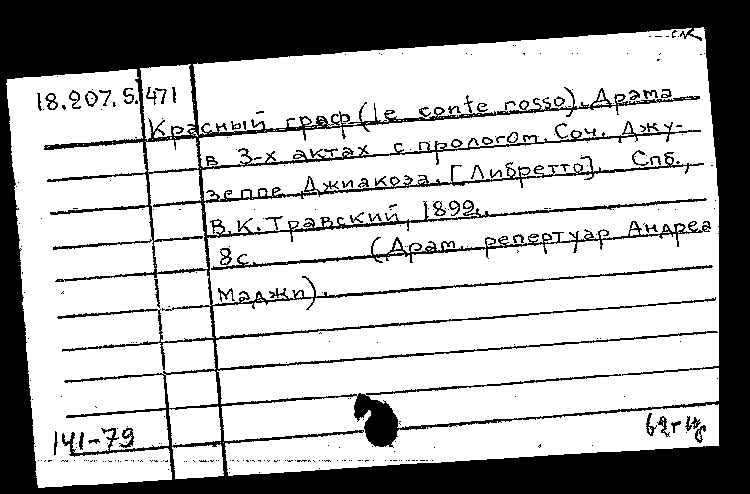 18.207.5.471
Красный граф (le conte rosso). Драма
в 3-х актах с прологом. Соч. Джу-
зеппе Джиакоза. [Либретто]. Спб.,
В.К. Травский, 1892.
8с. (Драм. репертуар Андреа
Маджи).
141-79